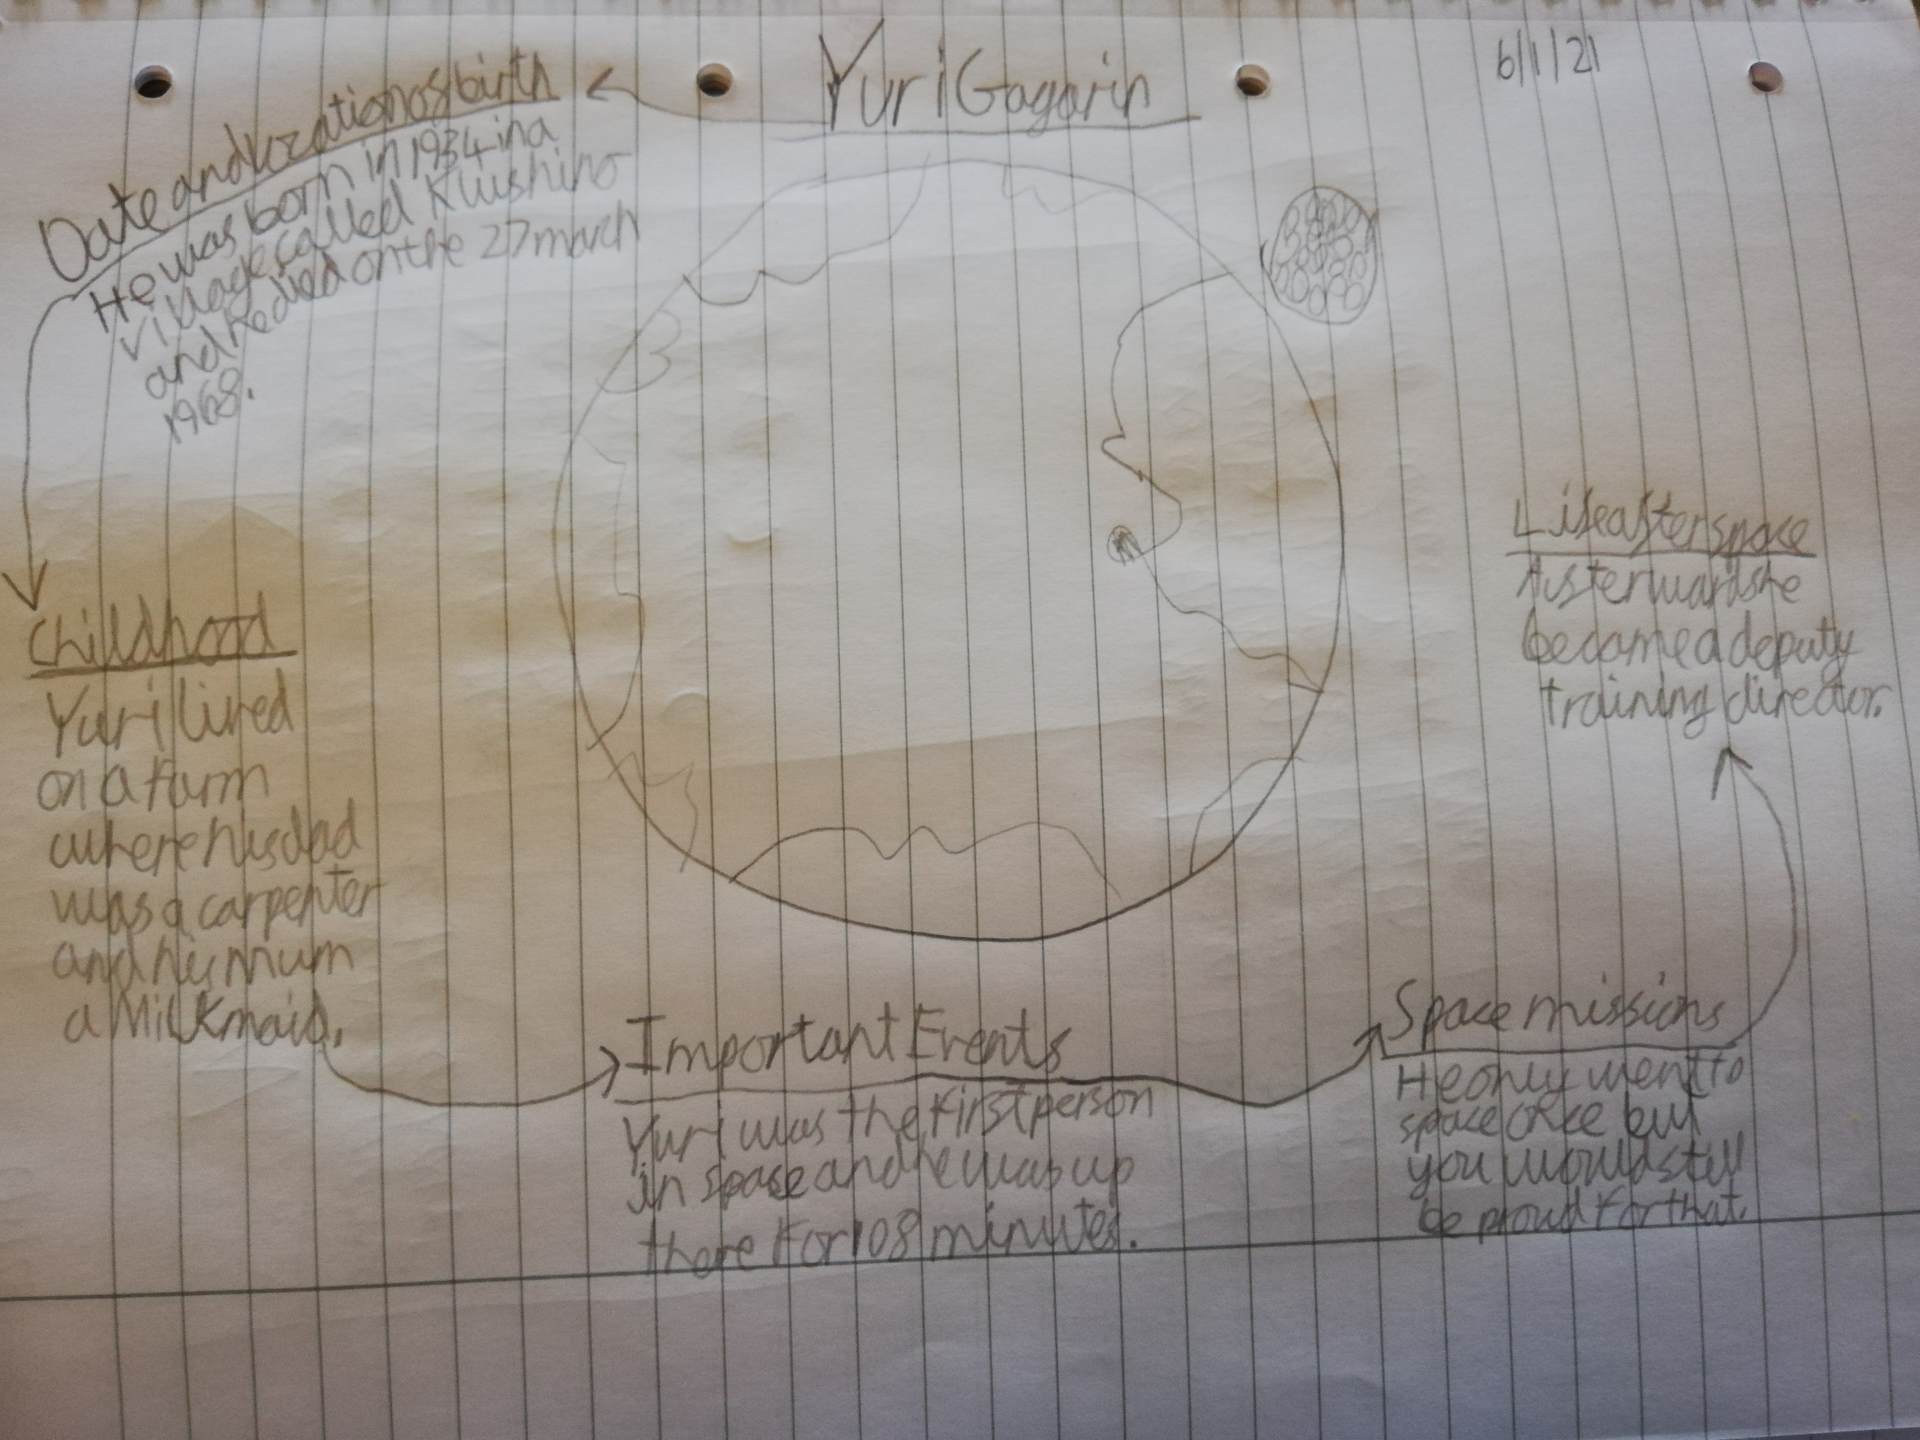 Yuri Gagarin
6/1/21
Date and location of birth
He was born in 1934 in a
village called Klushino
and he died on the 27 march
1968.
Childhood
Yuri lived
on a farm
where his dad
was a carpenter
and his mum
a Milkmaid.
Important Events
Yuri was the first person
in space and he was up
there for 108 minutes.
Space missions
He only went to
space once but
you would still
be proud for that.
Life after space
Afterwards he
became a deputy
training director.